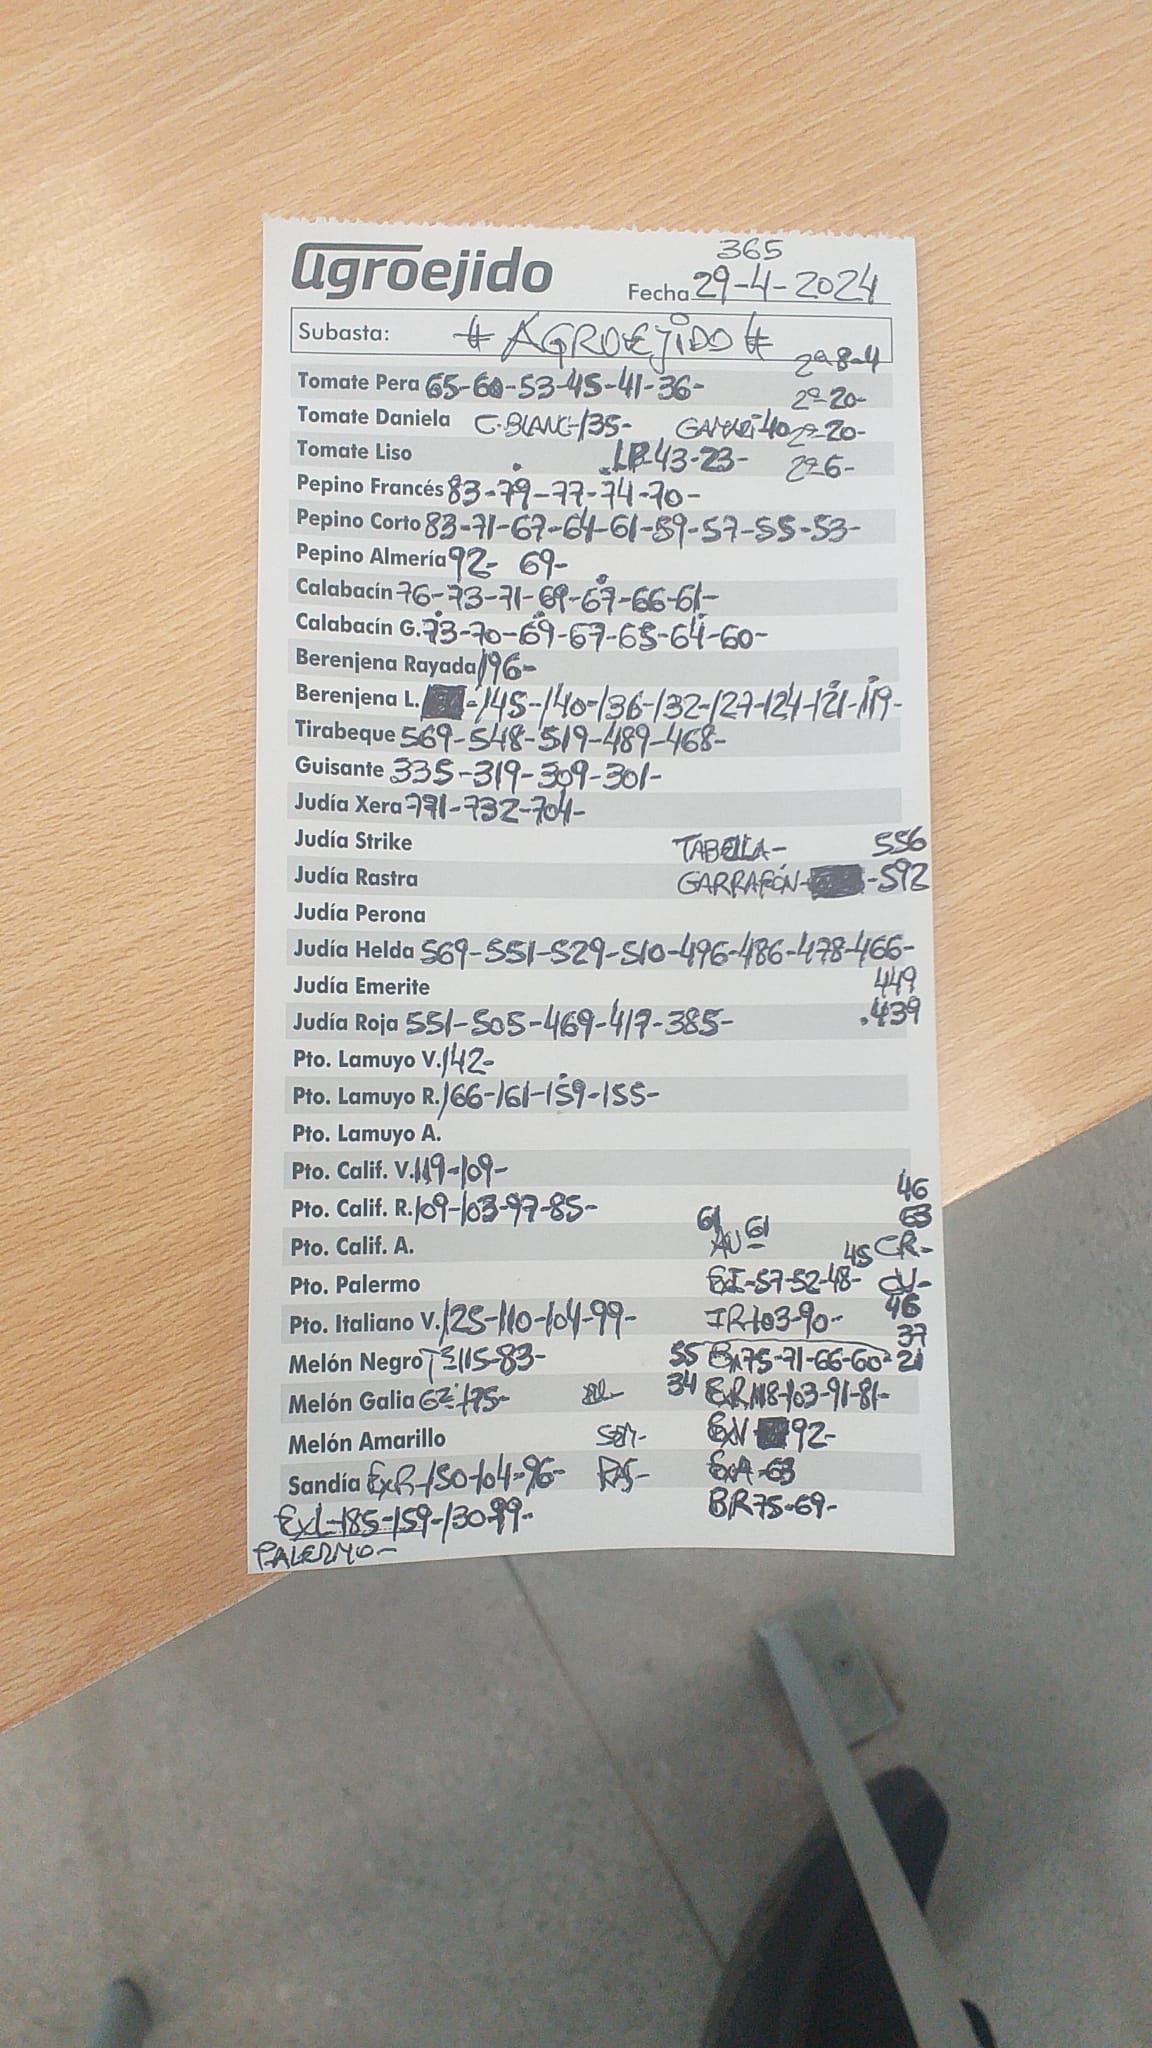 agroejido
365
Fecha 29-4-2024
Subasta: # AGROEJIDO #
2ª 8-4
Tomate Pera 65-60-53-45-41-36- 2ª-20-
Tomate Daniela C.BLANC-135- 40 2ª-20-
Tomate Liso 43-23- 2ª6-
Pepino Francés 83-79-77-74-70-
Pepino Corto 83-71-67-64-61-59-57-55-53-
Pepino Almería 92- 69-
Calabacín 76-73-71-69-67-66-61-
Calabacín G. 73-70-69-67-65-64-60-
Berenjena Rayada 196-
Berenjena L. -145-140-136-132-127-124-121-119-
Tirabeque 569-548-519-489-468-
Guisante 335-319-309-301-
Judía Xera 771-732-704-
Judía Strike TABELLA- 556
Judía Rastra GARRAFÓN- -592
Judía Perona
Judía Helda 569-551-529-510-496-486-478-466-
Judía Emerite 449
Judía Roja 551-505-469-417-385- .439
Pto. Lamuyo V. 142-
Pto. Lamuyo R. 166-161-159-155-
Pto. Lamuyo A.
Pto. Calif. V. 119-109-
46
Pto. Calif. R. 109-103-97-85- 61 61 63
Pto. Calif. A. AU 45 CR-
Pto. Palermo ExI-57-52-48- CU-
46
Pto. Italiano V. 125-110-104-99- IR103-90- 37
Melón Negro T3115-83- 55 Bx75-71-66-60- 21
Melón Galia 6ª-175- 34 ExR118-103-91-81-
Melón Amarillo SEM- ExV 92-
Sandía ExR-150-104-96- RAS- ExA-63
ExL-185-159-130-99- BR75-69-
PALERMO-